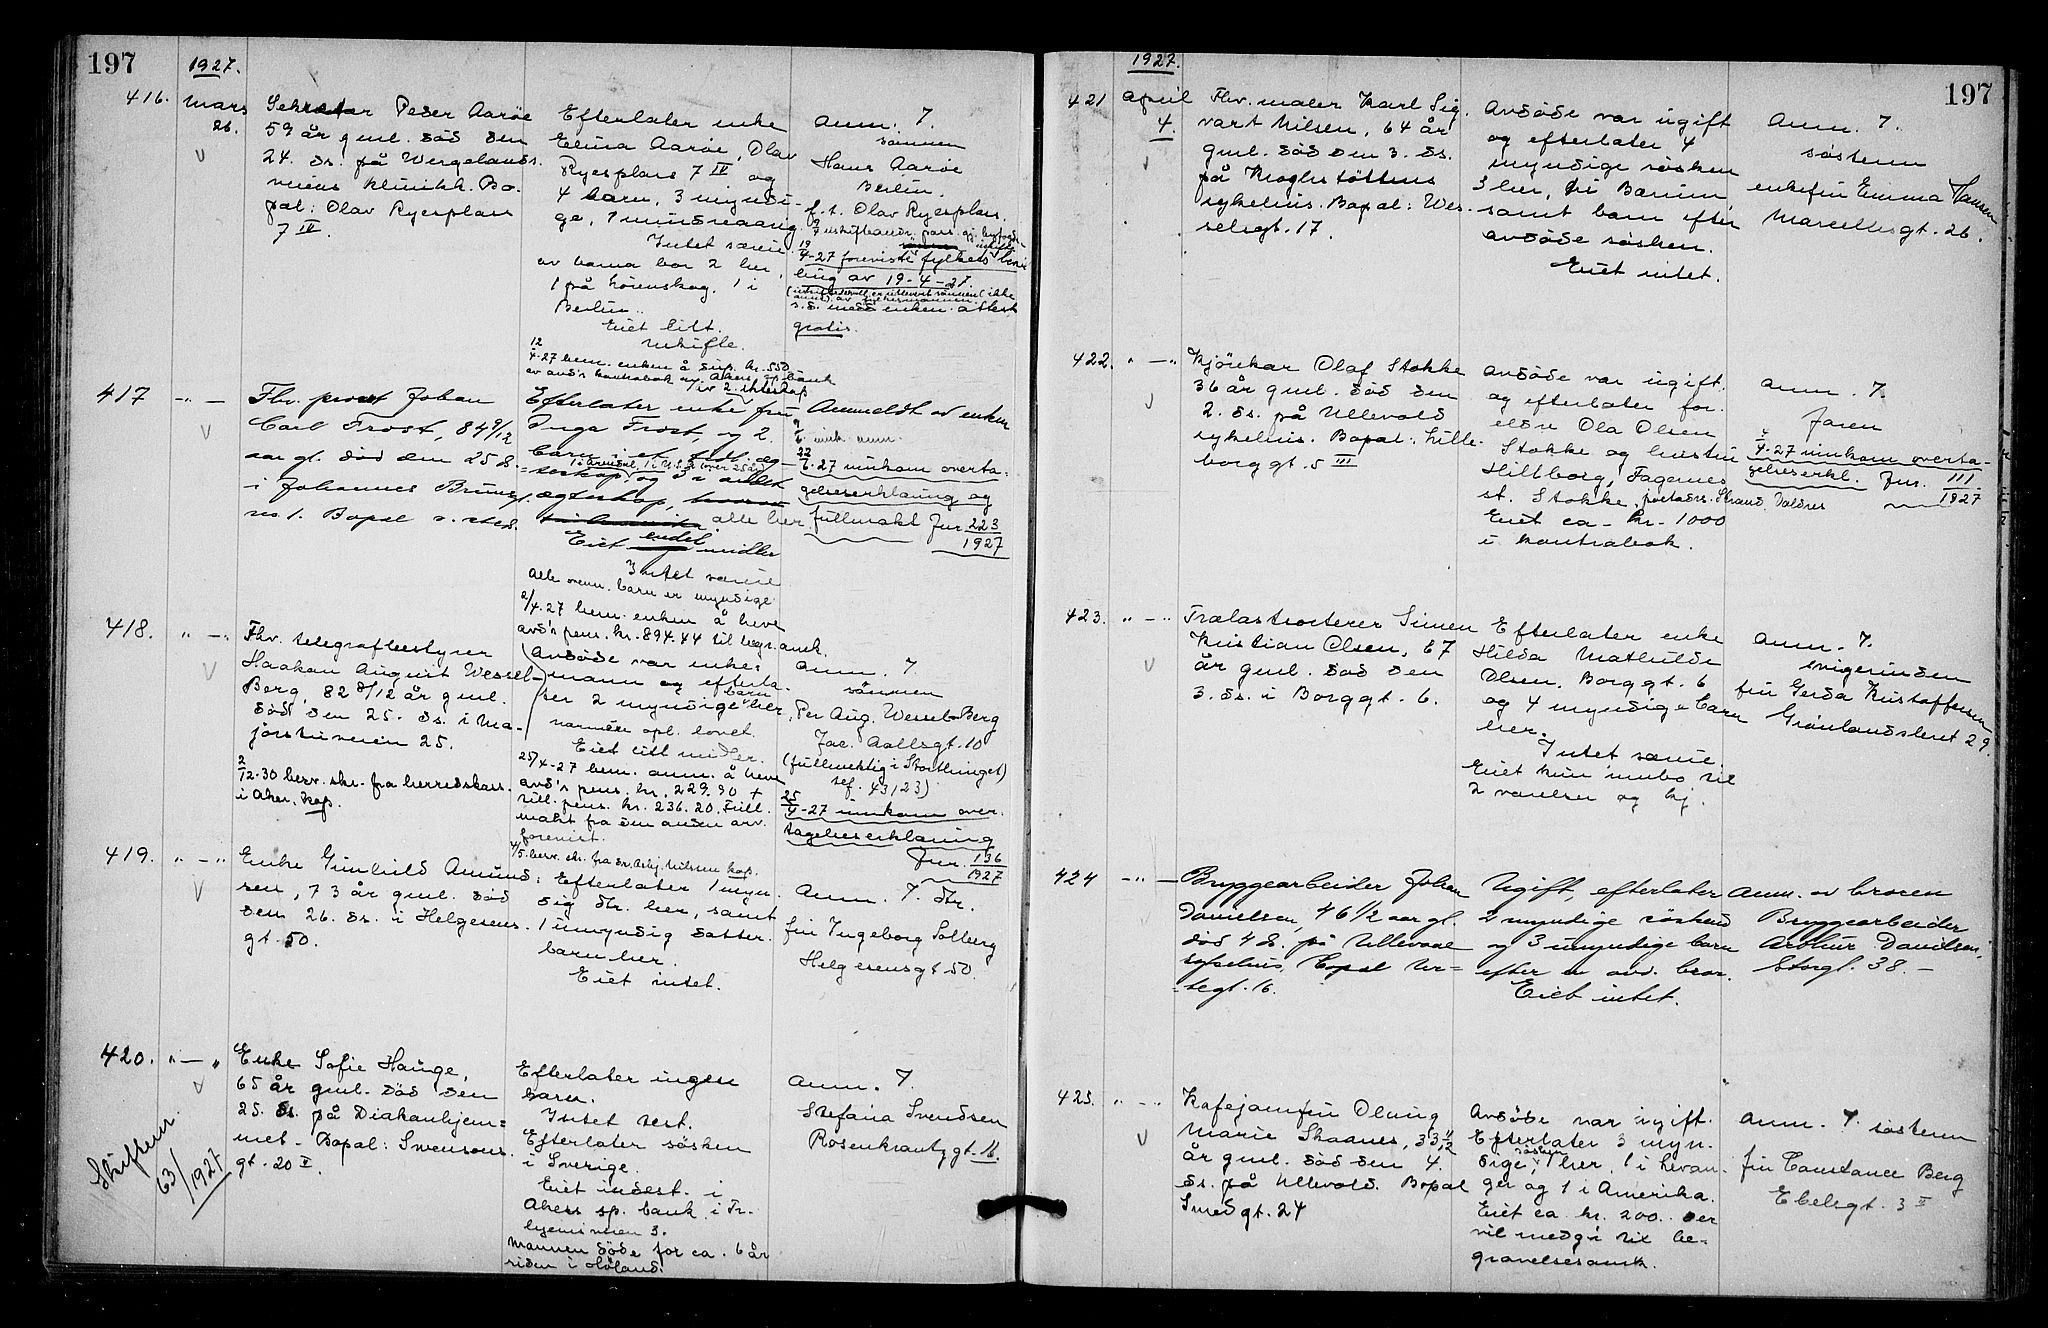 197
1927.
416.
mars
26.
Sekretær Peder Aarøe
59 år gml. död den
24. ds. på Wergelands-
veiens klinikk. Bo-
pæl: Olav Ryesplass
7 IV.
Efterlater enke
Elina Aarøe, Olav
Ryesplass 7 IV og
4 barn, 3 myndi-
ge, 1 mindreaarig.
Intet særeie.
av barna bor 2 her,
1 på Lörenskog, 1 i
Berlin.
Eiet litt.
Uskifte.
12/4-27 bem. enken å disp. kr. 550
av avd's kontrabok i Akers sp.bank
Anm. 7.
sönnen
Hans Aarøe
Berlin.
f.t. Olav Ryesplass.
19/4-27 forevist fylkets bevil-
ling av 19-4-27.
s.d. medd enken attest
gratis.
417
Fhv. prost Johan
Carl Frost, 84 9/12
aar gl. död den 25 ds.
i Johannes Bruns
v. 1. Bopæl s. sted.
Efterlater enke fru
Inga Frost, og 2
barn i et tidl. æg-
teskap, og 3 i andet
ægteskap,
alle her.
Eiet endel midler
Intet særeie
Alle ovenn. barn er myndige
2/4.27 bem. enken å heve
avd's pens. kr. 894.44 til begr.omk.
Anmeldt av enken
22/6-27 innkom overta-
gelseserklæring og
fullmakt Jnr. 223/1927
418.
Fhv. telegrafbestyrer
Haakon August Wessel-
Berg, 82 8/12 år gml.
död den 25. ds. i Ma-
jorstuveien 25.
2/12-30 berv. skr. fra herredskass.
i Aker. kop.
Avdöde var enke-
mann og efterla-
ter 2 myndige barn her,
nærmere opl. lovet.
Eiet litt midler.
25/4-27 bem. anm. å heve
avd's pens. kr. 229.90 +
till. pens. kr. 236.20. Full-
makt fra den anden arv.
forevist.
4/5. berv. skr. fra Asbj. Nilsen kop.
Anm. 7.
sönnen
Per Aug. Wessel-Berg
Jac. Aallsgt. 10
(fullmektig i Stortinget)
tlf. 43123)
25/4-27 innkom over-
tagelseserklæring
Jnr. 136/1927
419.
Enke Gunhild Amund-
sen, 73 år gml. död
den 26. ds. i Helgesens-
gt. 50.
Efterlater 1 myn-
dig dtr. her, samt
1 umyndig datter-
barn her.
Eiet intet.
Anm. 7. dtr.
fru Ingeborg Solberg
Helgesensgt 50.
420.
Skiftenr.
63/1927
Enke Sofie Hauge,
65 år gml. död den
25. ds. på Diakonhjem-
met. Bopæl: Swensens-
gt. 20 I.
Efterlater ingen
barn.
Intet test.
Efterlater sösken
i Sverige.
Eiet indest. i
Akers sp. bank. i Tr.
hjemsveien 3.
Mannen döde for ca. 6 år
siden i Höland.
Anm. 7.
Stefania Svendsen
Rosenkrantzgt. 11.
1927.
197
421
April
4.
Fhv. maler Karl Sig-
vart Nilsen, 64 år
gml. död den 3. ds.
på Krogstöttens
sykehus. Bopæl: Wes-
selsgt. 17.
Avdöde var ugift
og efterlater 4
myndige sösken,
3 her, 1 i Bærum,
samt barn efter
avdöde sösken.
Eiet intet.
Anm. 7.
söstern
enkefru Emma Hansen
Marcellesgt. 26.
422.
Kjörekar Olaf Stokke
36 år gml. död den
2. ds. på Ullevold
sykehus. Bopæl: Lille-
borggt. 5 III
Avdöde var ugift
og efterlater for-
eldre Ola Olsen
Stokke og hustru
Hiltborg, Fagernes
st. Stokke, postadrs. Strand, Valdres
Eiet ca. kr. 1000
i kontrabok.
Anm. 7.
faren
4-27 innkom overta-
gelseserkl. Jnr. 111/1927
423.
Trælastsorterer Simen
Kristian Olsen, 67
år gml. död den
3. ds. i Borggt. 6.
Efterlater enke
Hilda Mathilde
Olsen, Borggt. 6
og 4 myndige barn
her.
Intet særeie.
Eiet kun innbo til
2 værelser og kj.
Anm. 7.
svigerinden
fru Gerda Kristoffersen
Grønlandsleret 29.
424
Bryggearbeider Johan
Danielsen, 46 1/2 aar gl.
död 4 ds. på Ullevaal
sykehus, Bopæl Ur-
tegt. 16.
Ugift, efterlater
2 myndige söskend
og 3 umyndige barn
efter en avd. bror.
Eiet intet.
Anm. av broren
Bryggearbeider
Arthur Danielsen,
Storgt. 38.
425.
Kafejomfru Olaug
Marie Skaanes, 33 11/12
år gml. död den 4.
ds. på Ullevold. Bopæl
Smedgt. 24
Avdöde var ugift.
Efterlater 3 myn-
dige sösken, 1 her, 1 i Levan-
ger og 1 i Amerika.
Eiet ca. kr. 200. der
vil medgå til be-
gravelsesomk.
Anm. 7. söstern
fru Constance Berg
Ebelsgt. 3 II